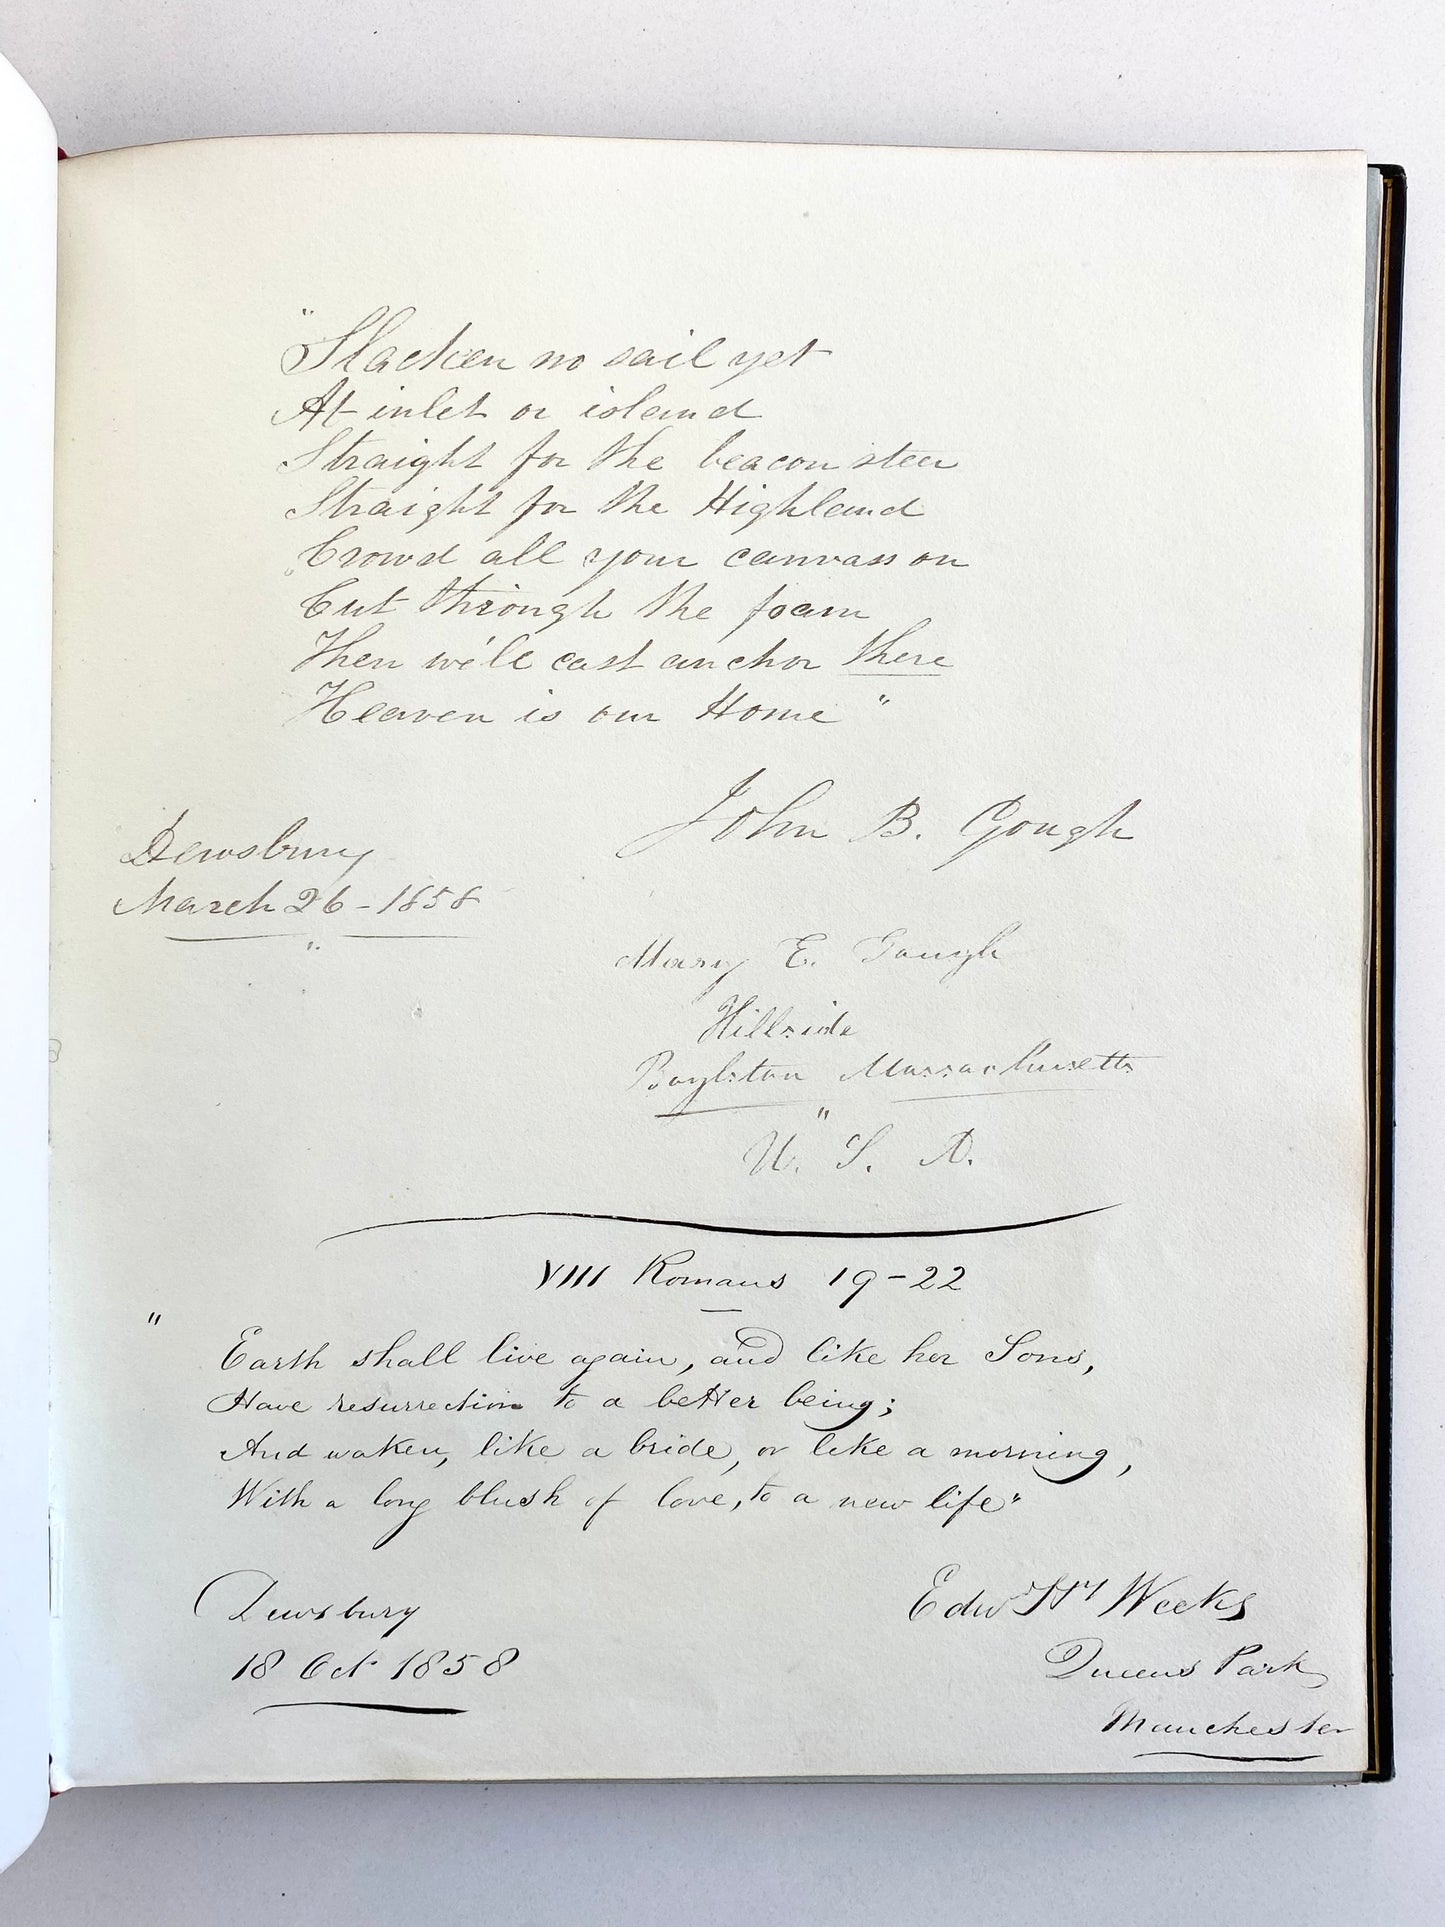 "Slacken no sail yet
At inlet or island
Straight for the beacon steer
Straight for the Highland
Crowd all your canvass on
Cut through the foam
Then we'll cast anchor there
Heaven is our Home"
John B. Gough
Dewsbury
March 26 - 1858
"
Mary E. Gough
Hillside
Boylston Massachusetts
"
U. S. A.
VIII Romans 19-22
"
Earth shall live again, and like her Sons,
Have resurrection to a better being;
And waken, like a bride, or like a morning,
With a long blush of love, to a new life"
Dewsbury
18 Oct 1858
Edwd Hy Weeks
Queens Park
Manchester